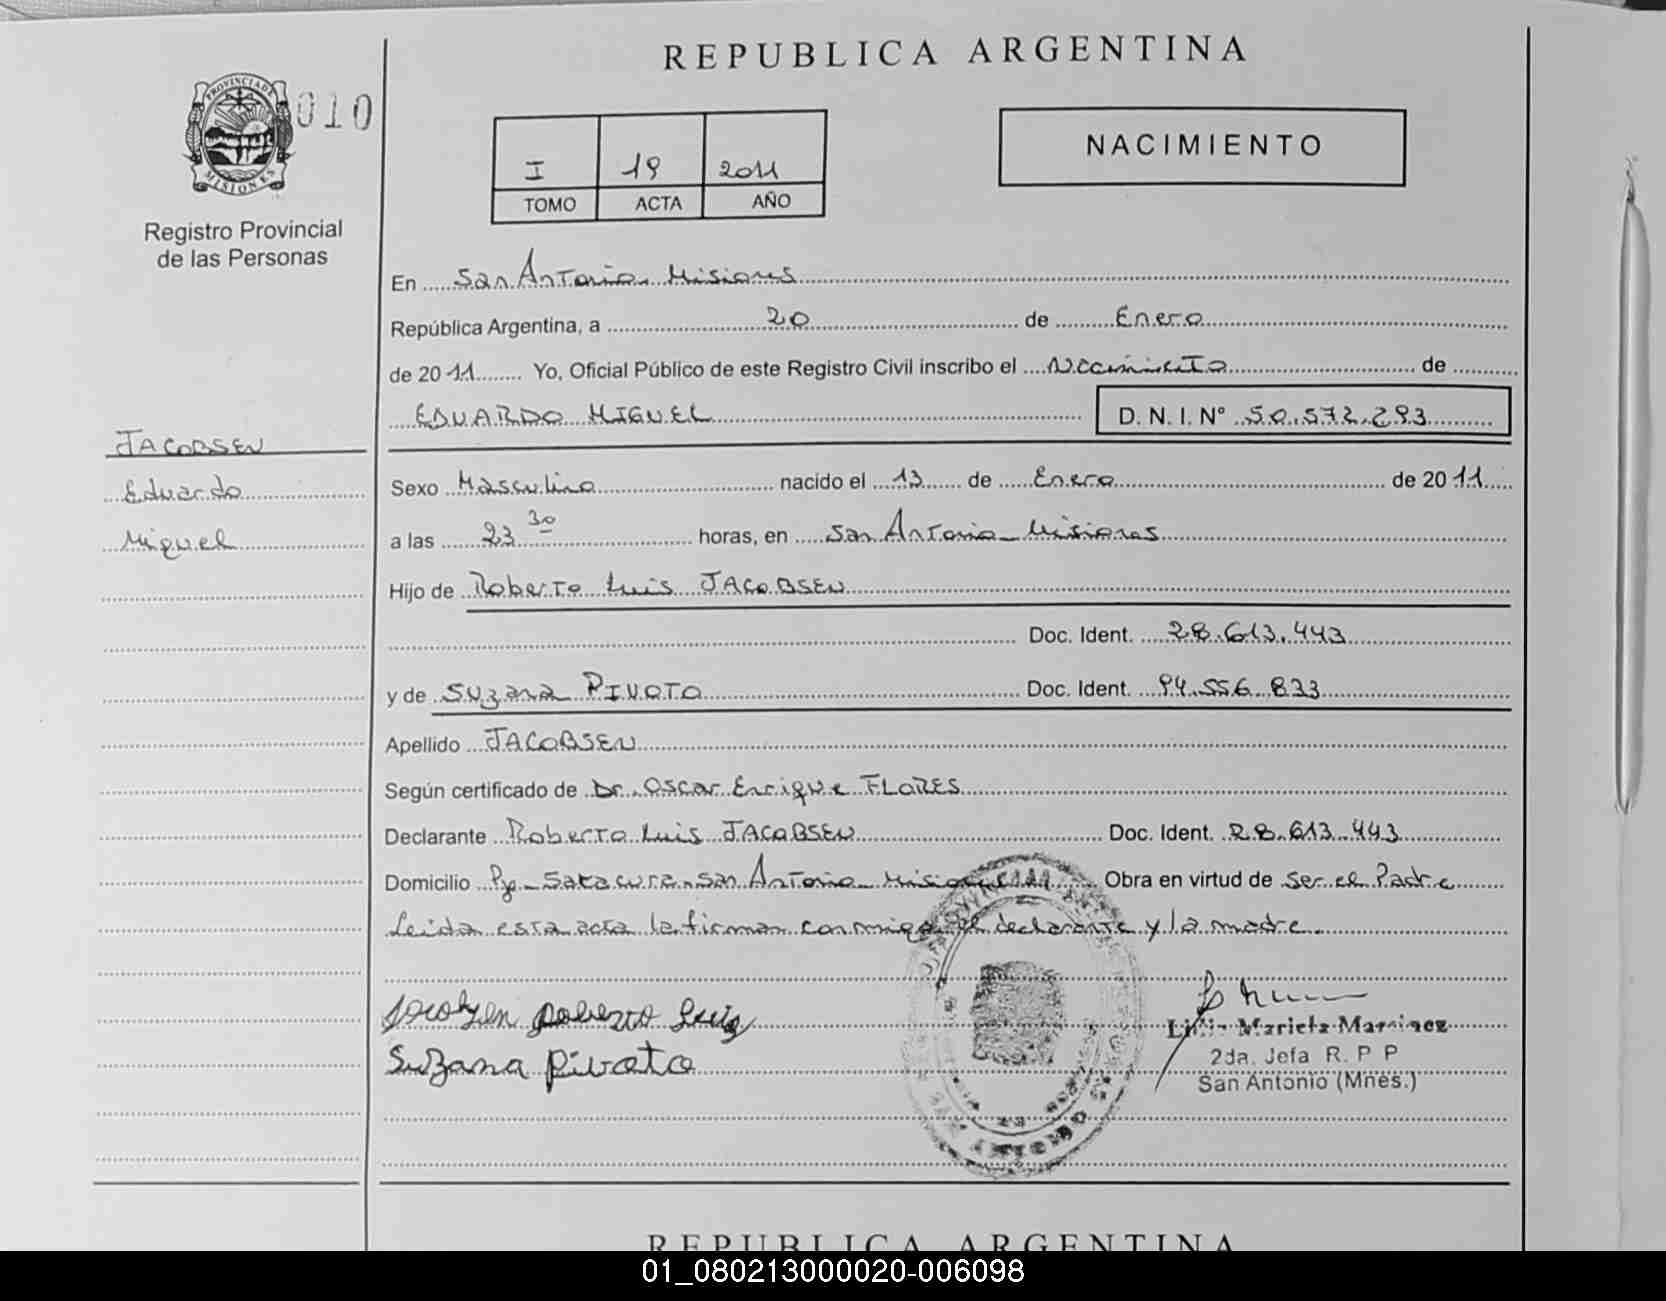 REPUBLICA ARGENTINA
PROVINCIA DE MISIONES
010
NACIMIENTO
I 19 2011
TOMO ACTA AÑO
Registro Provincial
de las Personas
En San Antonio - Misiones
República Argentina, a 20 de Enero
de 2011 Yo, Oficial Público de este Registro Civil inscribo el Nacimiento de
EDUARDO MIGUEL D. N. I. N° 50.572.293
JACOBSEN
Eduardo
Miguel
Sexo Masculino nacido el 13 de Enero de 2011
a las 23 30 horas, en San Antonio - Misiones
Hijo de Roberto Luis JACOBSEN
Doc. Ident. 28.613.443
y de Suzana PIVOTO Doc. Ident. 94.556.833
Apellido JACOBSEN
Según certificado de Dr. Oscar Enrique FLORES
Declarante Roberto Luis JACOBSEN Doc. Ident. 28.613.443
Domicilio San Antonio Obra en virtud de Ser el Padre
Leida esta acta la firman conmigo el declarante y la madre.
Jacobsen Roberto Luis
Suzana Pivoto
Mariela Martinez
2da. Jefa R. P P
San Antonio (Mnes.)
REPUBLICA ARGENTINA
01_080213000020-006098